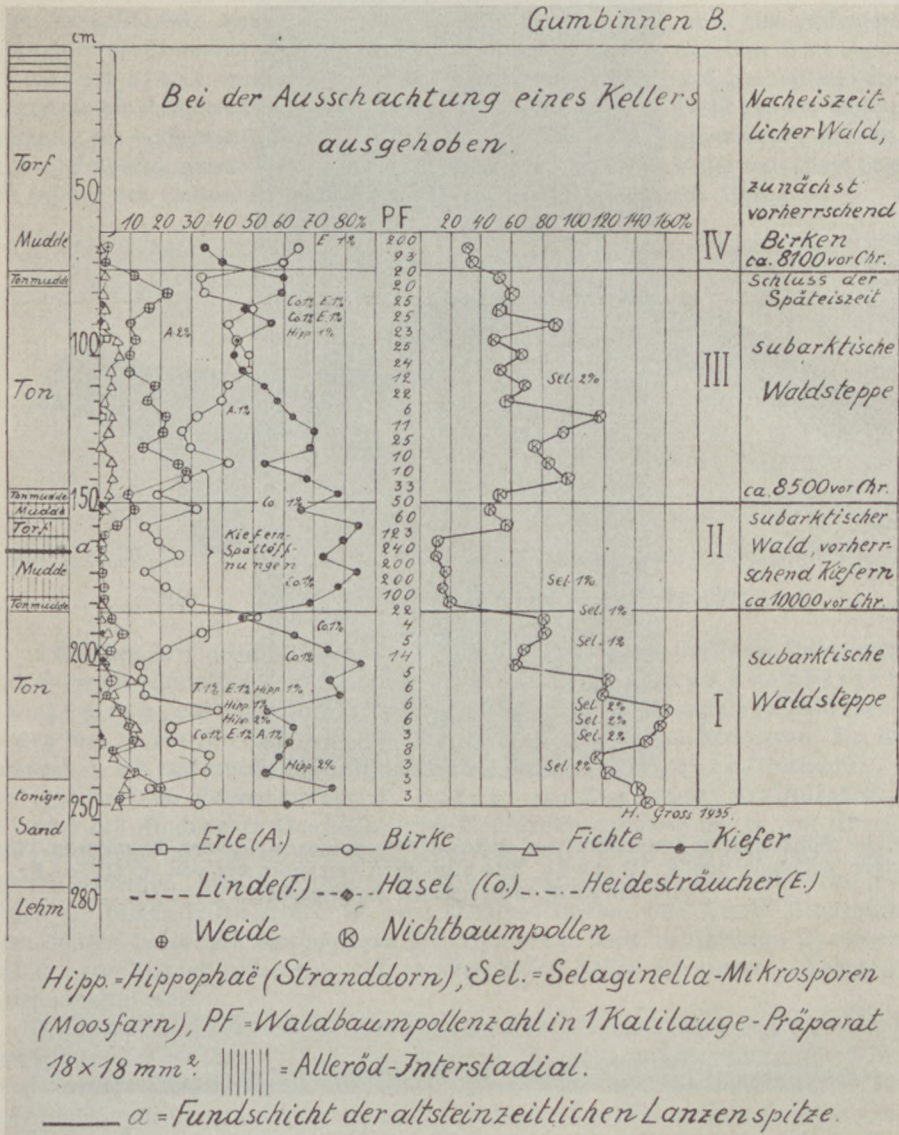 Gumbinnen B.
cm
Bei der Ausschachtung eines Kellers
ausgehoben.
Torf
50
Mudde
Tonmudde
100
Ton
150
Tonmudde
Mudde
Torf
a
Mudde
Tonmudde
200
Ton
250
toniger
Sand
Lehm
280
10 20 30 40 50 60 70 80% PF 20 40 60 80 100 120 140 160%
E 1%
Co.1% E.1%
Co.1% E.1%
Hipp 1%
A.2%
A.1%
Co. 1%
Kiefern-
Spaltöff-
nungen
Co.1%
Co.1%
Co.1%
T.1% E.1% Hipp 1%
Hipp 1%
Hipp. 2%
Co.1% E.1% A.1%
Hipp. 2%
200
93
20
20
25
25
23
25
24
12
22
6
11
25
10
10
33
50
60
123
240
200
200
100
22
4
5
14
5
6
6
6
3
8
3
3
3
Sel. 2%
Sel. 1%
Sel. 1%
Sel. 1%
Sel. 2%
Sel. 2%
Sel. 2%
Sel. 2%
IV
III
II
I
Nacheiszeit-
licher Wald,
zunächst
vorherrschend
Birken
ca. 8100 vor Chr.
Schluss der
Späteiszeit
subarktische
Waldsteppe
ca. 8500 vor Chr.
subarktischer
Wald, vorherr-
schend Kiefern
ca 10000 vor Chr.
subarktische
Waldsteppe
H. Gross 1935.
Erle (A.) Birke Fichte Kiefer
Linde (T.) Hasel (Co.) Heidesträucher (E.)
Weide Nichtbaumpollen
Hipp. = Hippophaë (Stranddorn), Sel. = Selaginella-Mikrosporen
(Moosfarn), PF = Waldbaumpollenzahl in 1 Kalilauge-Präparat
18 × 18 mm². = Alleröd-Interstadial.
a = Fundschicht der altsteinzeitlichen Lanzenspitze.